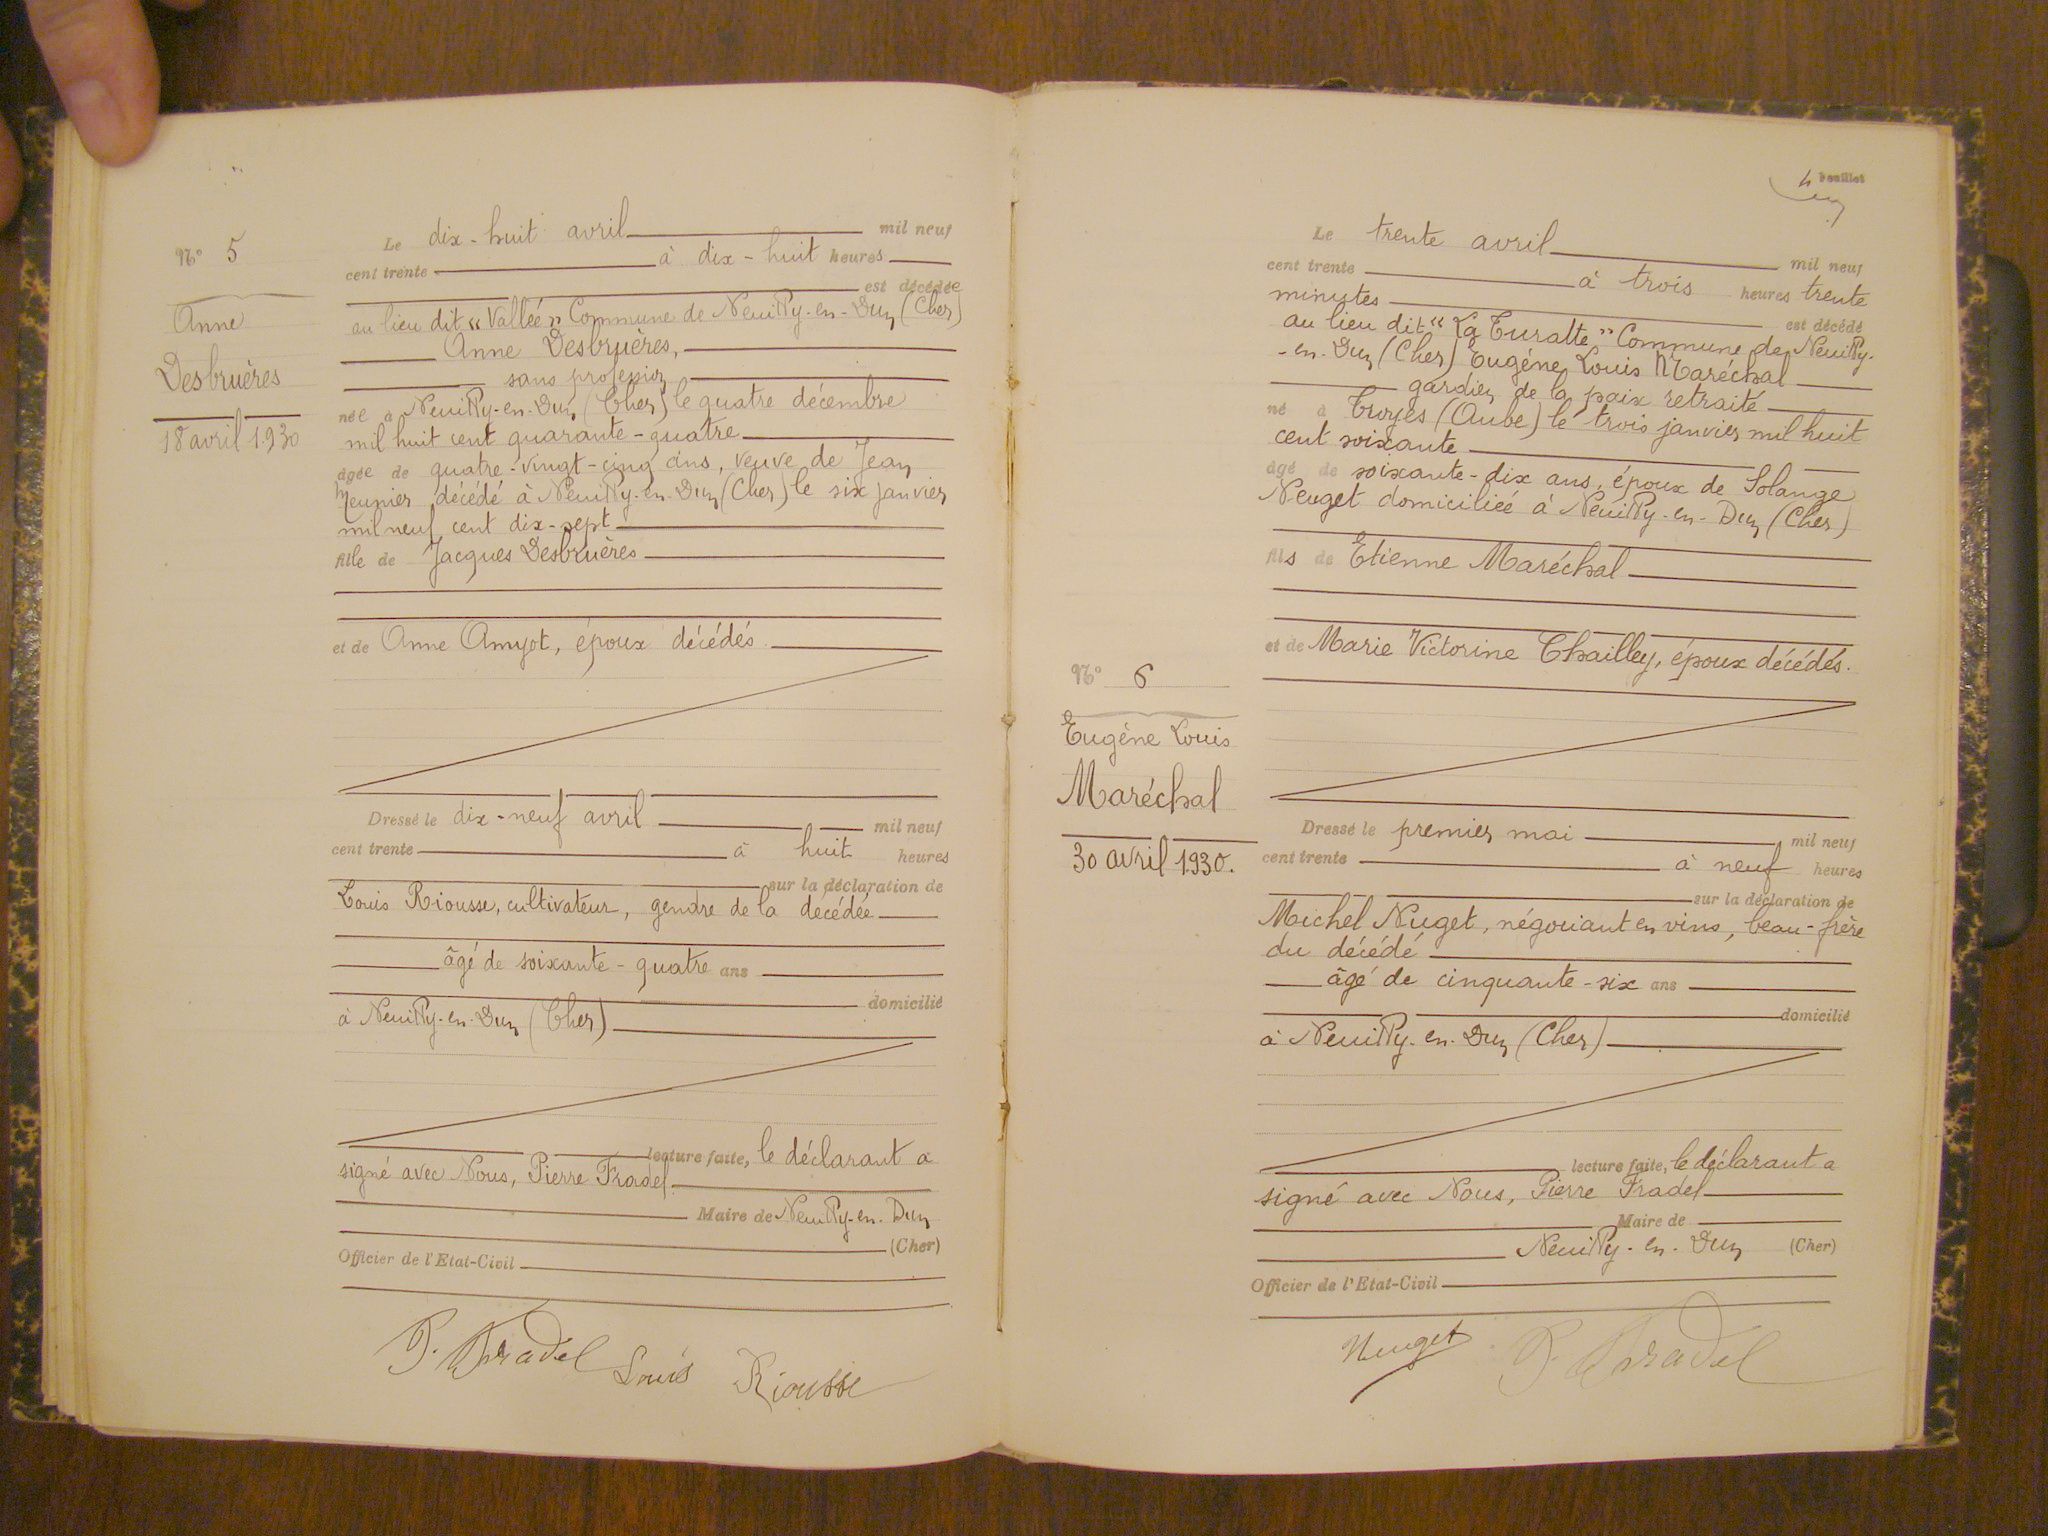 N° 5
Anne
Desbruères
18 avril 1930
Le dix-huit avril mil neuf
cent trente à dix-huit heures
est décédée
au lieu dit "Vallée" Commune de Neuilly-en-Dun (Cher)
Anne Desbruères,
sans profession
née à Neuilly-en-Dun (Cher) le quatre décembre
mil huit cent quarante-quatre
âgée de quatre-vingt-cinq ans, veuve de Jean
Meunier décédé à Neuilly-en-Dun (Cher) le six janvier
mil neuf cent dix-sept
fille de Jacques Desbruères
et de Anne Amyot, époux décédés
Dressé le dix-neuf avril mil neuf
cent trente à huit heures
sur la déclaration de
Louis Riousse, cultivateur, gendre de la décédée
âgé de soixante-quatre ans
domicilié
à Neuilly-en-Dun (Cher)
lecture faite, le déclarant a
signé avec Nous, Pierre Fradel
Maire de Neuilly-en-Dun
(Cher)
Officier de l'Etat-Civil
P. Fradel Louis Riousse
4 feuillet
N° 6
Eugène Louis
Maréchal
30 avril 1930.
Le trente avril mil neuf
cent trente à trois heures trente
minutes est décédé
au lieu dit "La Turatte" Commune de Neuilly-
-en-Dun (Cher) Eugène Louis Maréchal
gardien de la paix retraité
né à Troyes (Aube) le trois janvier mil huit
cent soixante
âgé de soixante-dix ans, époux de Solange
Neuget domiciliée à Neuilly-en-Dun (Cher)
fils de Etienne Maréchal
et de Marie Victorine Chailley, époux décédés.
Dressé le premier mai mil neuf
cent trente à neuf heures
sur la déclaration de
Michel Nuget, négociant en vins, beau-frère
du décédé
âgé de cinquante-six ans
domicilié
à Neuilly-en-Dun (Cher)
lecture faite, le déclarant a
signé avec Nous, Pierre Fradel
Maire de
Neuilly-en-Dun (Cher)
Officier de l'Etat-Civil
Neuget P. Fradel